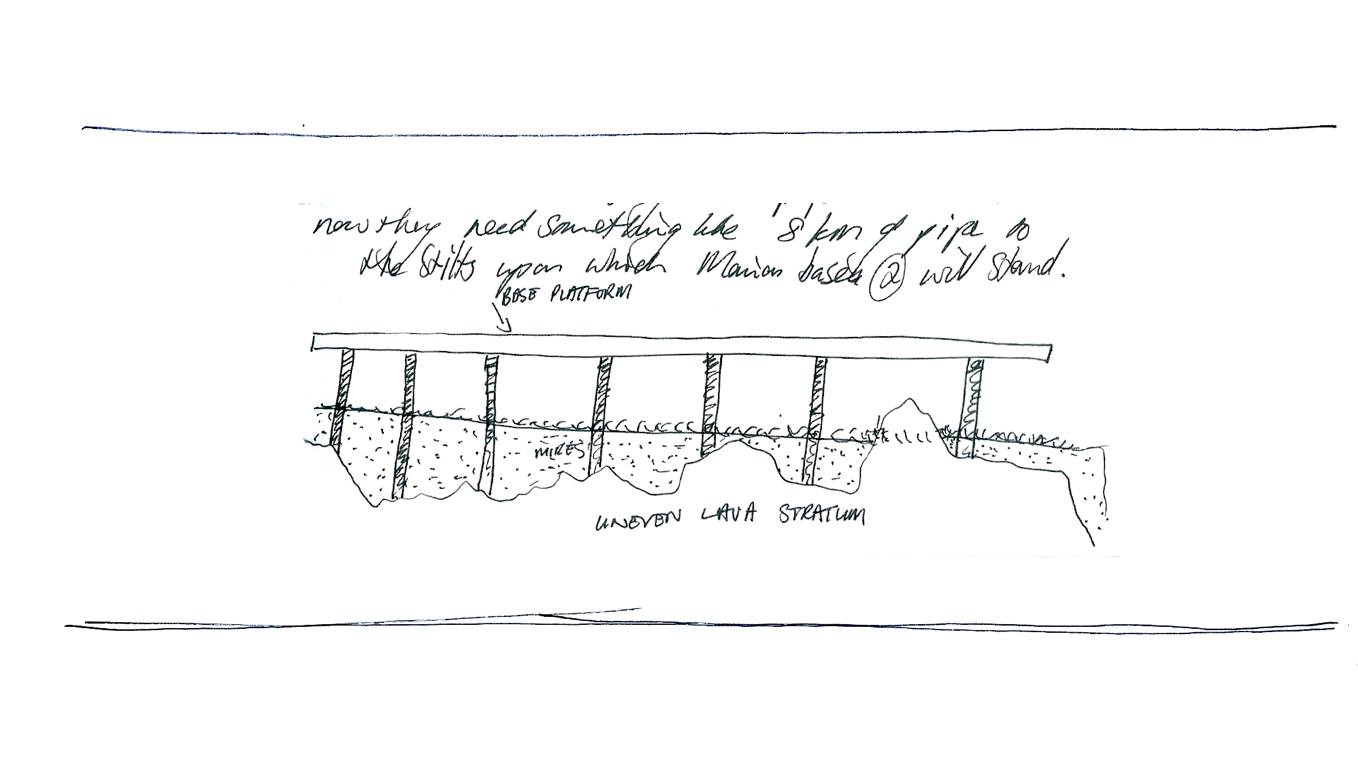 now they need something like '8' km of pipe to
the stilts upon which Marion base ② will stand.
BASE PLATFORM
MIRES
UNEVEN LAVA STRATUM